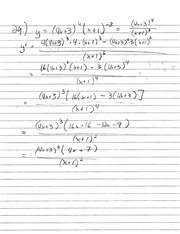 29) y = (4x+3)^4 (x+1)^-3 = (4x+3)^4 / (x+1)^3
y' = 4(4x+3)^3 · 4 · (x+1)^3 - (4x+3)^4 3(x+1)^2 / (x+1)^6
= 16(4x+3)^3 (x+1) - 3(4x+3)^4 / (x+1)^4
= (4x+3)^3 [16(x+1) - 3(4x+3)] / (x+1)^4
= (4x+3)^3 (16x+16 - 12x - 9) / (x+1)^2
= (4x+3)^3 (4x+7) / (x+1)^2